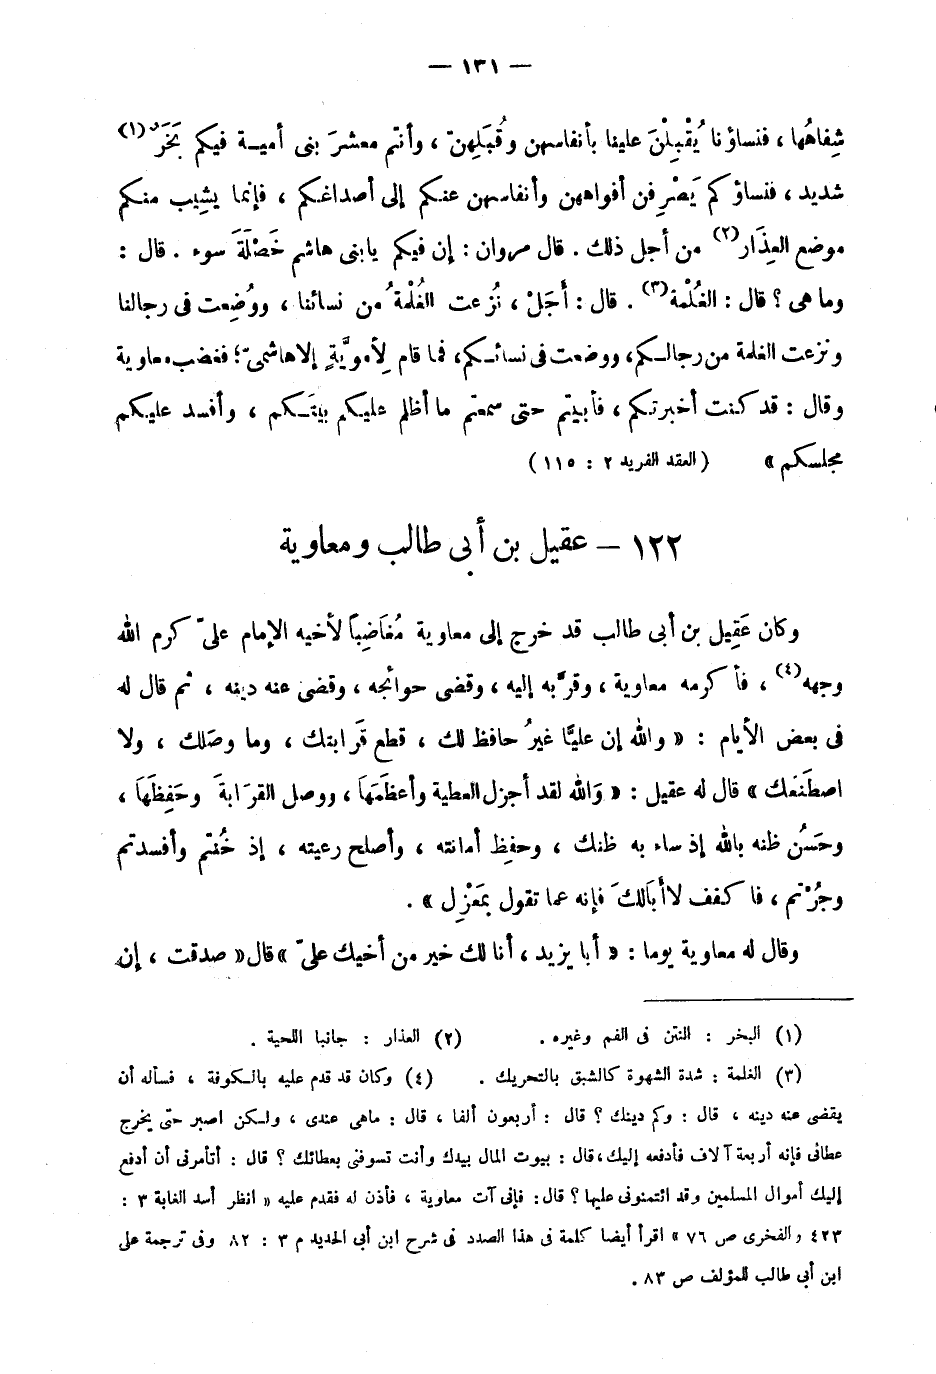 — ١٣١ —
شِفاهُها ، فنساؤنا يُقْبِلْنَ علينا بأنفاسهن وقُبَلِهنّ ، وأنتم معشرَ بنى أميـة فيكم بَخَرٌ(١)
شديد ، فنساؤكم يَصْرِفن أفواههن وأنفاسهن عنكم إلى أصداغكم ، فإنما يشيب منكم
موضع العِذَار(٢) من أجل ذلك . قال مروان : إن فيكم يابنى هاشم خَصْلَةَ سوء . قال :
وما هى ؟ قال : الغُلْمة(٣) . قال : أَجَلْ ، نُزعت الغُلْمةُ من نسائنا ، ووُضِعت فى رجالنا
ونزعت الغلمة من رجالكم، ووضعت فى نسائكم، فما قام لِأمويَّةٍ إلا هاشمىّ؛ فغضب معاوية
وقال : قد كنت أخبرتكم ، فأبيتم حتى سمعتم ما أظلم عليكم بيتَكم ، وأفسد عليكم
مجلسكم » (العقد الفريد ٢ : ١١٥)
١٢٢ — عقيل بن أبى طالب ومعاوية
وكان عَقِيل بن أبى طالب قد خرج إلى معاوية مُغَاضِباً لأخيه الإمام علىّ كرم الله
وجهه(٤) ، فأكرمه معاوية ، وقرَّبه إليه ، وقضى حوائجه ، وقضى عنه دينه ، ثم قال له
فى بعض الأيام : « والله إن عليًّا غيرُ حافظ لك ، قطع قَرابتك ، وما وصَلك ، ولا
اصطَنَعك » قال له عقيل : « وَالله لقد أجزل العطية وأعظَمَهَا ، ووصل القرَابةَ وحَفِظَهَا ،
وحَسُن ظنه بالله إذ ساء به ظنك ، وحفِظ أمانته ، وأصلح رعيته ، إذ خُنتم وأفسدتم
وجُرْتم ، فاكفف لاأبَالكَ فإنه عما تقول بمَعْزِل » .
وقال له معاوية يوما : « أبا يزيد ، أنا لك خير من أخيك علىّ » قال « صدقت ، إن
(١) البخر : النتن فى الفم وغيره . (٢) العذار : جانبا اللحية .
(٣) الغلمة : شدة الشهوة كالشبق بالتحريك . (٤) وكان قد قدم عليه بالكوفة ، فسأله أن
يقضى عنه دينه ، قال : وكم دينك ؟ قال : أربعون ألفا ، قال : ماهى عندى ، ولكن اصبر حتى يخرج
عطائى فإنه أربعة آلاف فأدفعه إليك، قال : بيوت المال بيدك وأنت تسوفنى بعطائك ؟ قال : أتأمرنى أن أدفع
إليك أموال المسلمين وقد ائتمنونى عليها ؟ قال : فإنى آت معاوية ، فأذن له فقدم عليه « انظر أسد الغابة ٣ :
٤٢٣ ، الفخرى ص ٧٦ » اقرأ أيضا كلمة فى هذا الصدد فى شرح ابن أبى الحديد م ٣ : ٨٢ وفى ترجمة على
ابن أبى طالب للمؤلف ص ٨٣ .